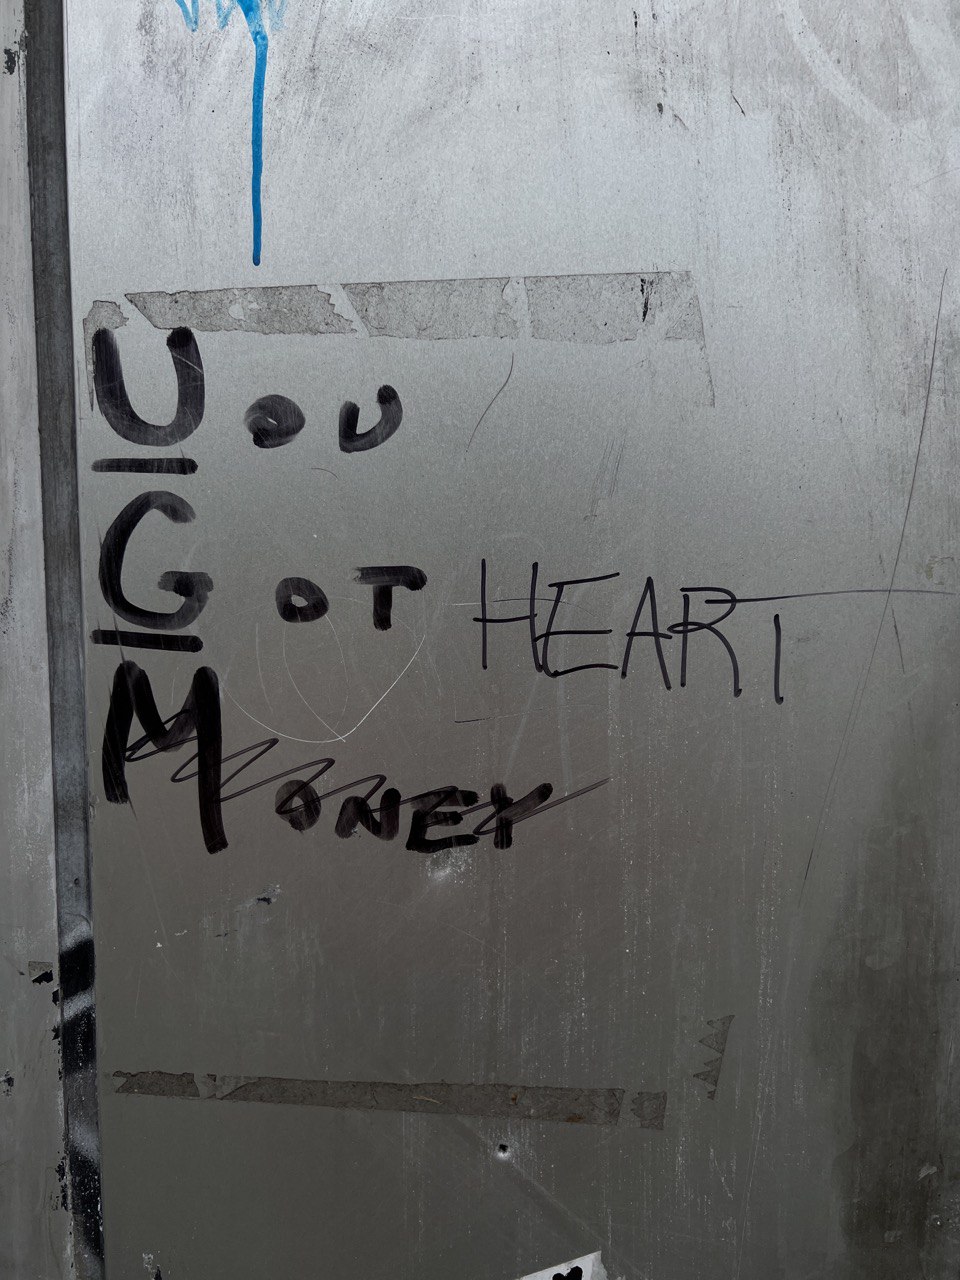 UOU
GOT HEART
MONEY